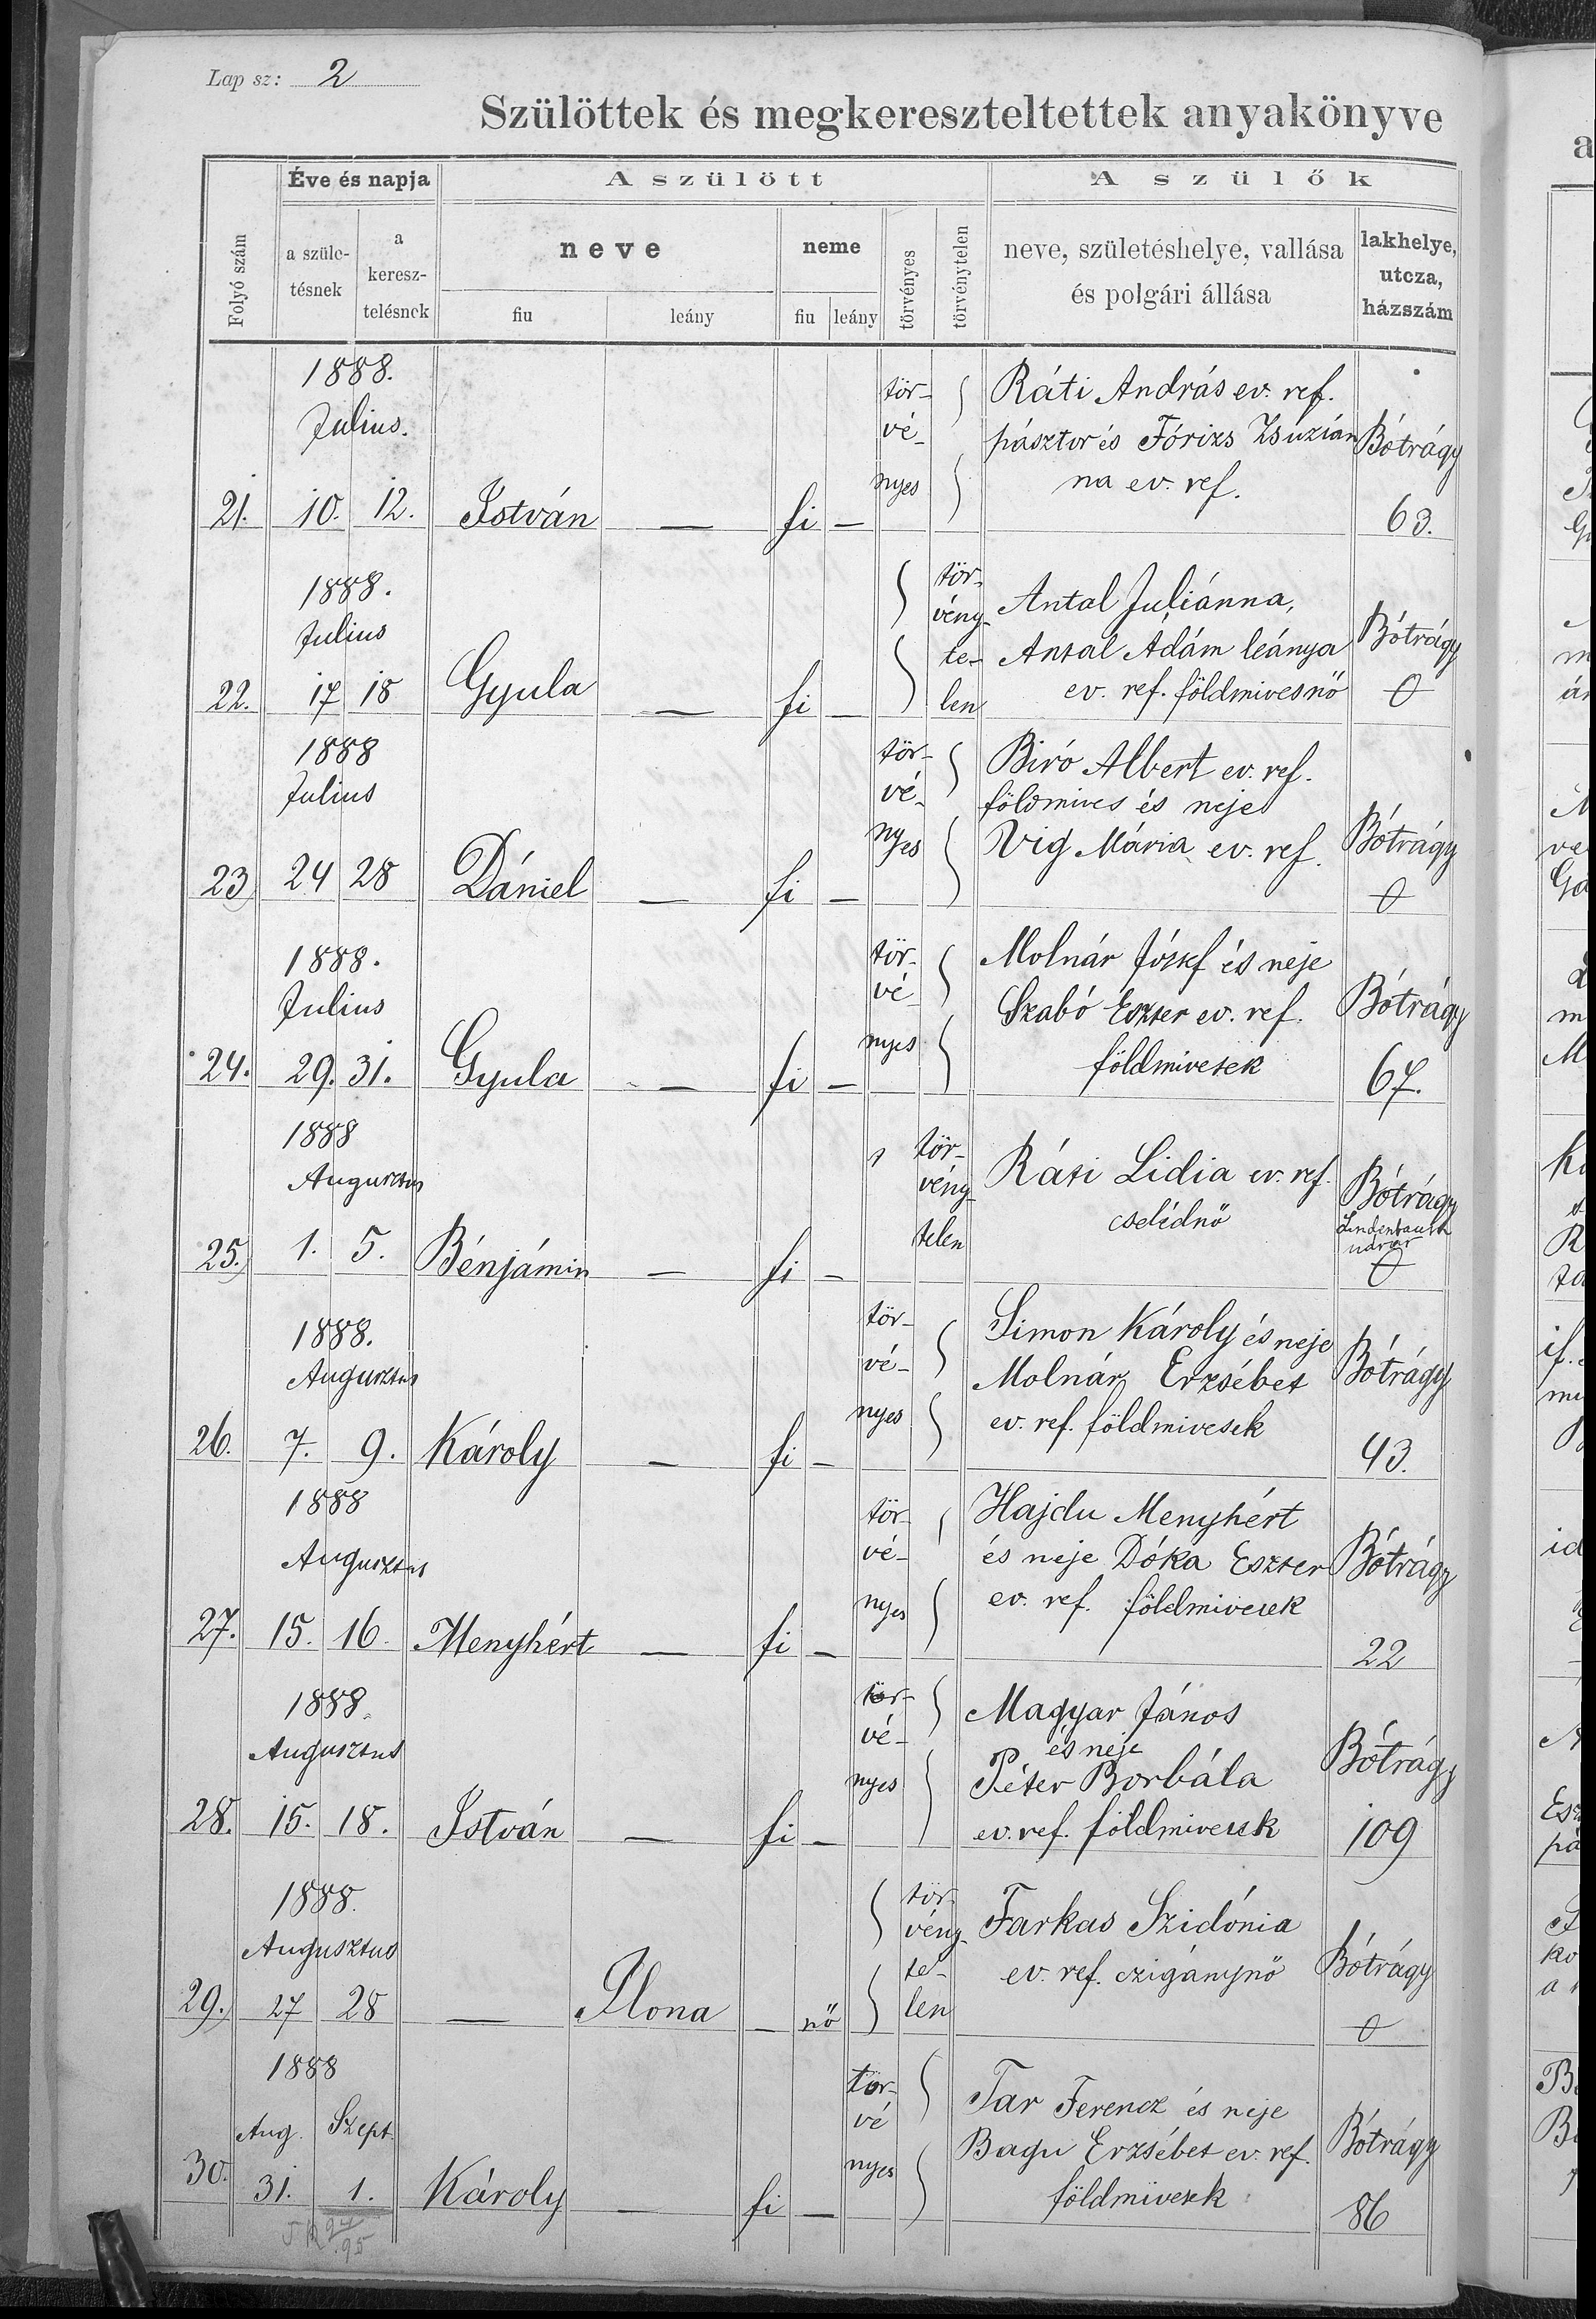 Lap sz: 2
Szülöttek és megkereszteltettek anyakönyve
Folyó szám
Éve és napja
a szüle-
tésnek
a
keresz-
telésnek
A szülött
neve
fiu leány
neme
fiu leány
törvényes
törvénytelen
A szülők
neve, születéshelye, vallása
és polgári állása
lakhelye,
utcza,
házszám
1888.
Julius.
21. 10. 12. István — fi —
tör-
vé-
nyes
Ráti András ev. ref.
pásztor és Fórizs Zsuzsán
na ev. ref.
Bótrágy
63.
1888.
Julius
22. 17 18 Gyula — fi —
tör-
vény-
te-
len
Antal Juliánna,
Antal Ádám leánya
ev. ref. földmivesnő
Bótrágy
0
1888
Julius
23 24 28 Dániel — fi —
tör-
vé-
nyes
Biró Albert ev. ref.
földmives és neje
Vig Mária ev. ref.
Bótrágy
0
1888.
Julius
24. 29. 31. Gyula — fi —
tör-
vé
nyes
Molnár József és neje
Szabó Eszter ev. ref.
földmivesek
Bótrágy
67.
1888
Augusztus
25. 1. 5. Bénjámin — fi —
tör-
vény-
telen
Ráti Lidia ev. ref.
cselédnő
Bótrágy
udvar
0
1888.
Augusztus
26. 7. 9. Károly — fi —
tör-
vé-
nyes
Simon Károly és neje
Molnár Erzsébet
ev. ref. földmivesek
Bótrágy
43.
1888
Augusztus
27. 15. 16. Menyhért — fi —
tör-
vé-
nyes
Hajdu Menyhért
és neje Dóka Eszter
ev. ref. földmivesek
Bótrágy
22
1888.
Augusztus
28. 15. 18. István — fi —
tör-
vé-
nyes
Magyar János
és neje
Péter Borbála
ev. ref. földmivesek
Bótrágy
109
1888.
Augusztus
29. 27 28 — Ilona — nő
tör-
vény-
te-
len
Farkas Szidónia
ev. ref. czigánynő
Bótrágy
0
1888
Aug. Szept.
30. 31. 1. Károly — fi —
tör-
vé
nyes
Tar Ferencz és neje
Bagu Erzsébet ev. ref.
földmivesek
Bótrágy
86